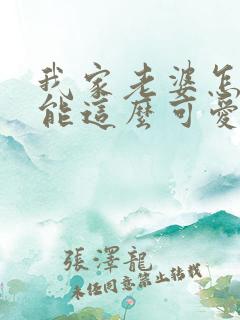 我家老婆怎
能這麼可愛
張澤龍
未經同意禁止轉載